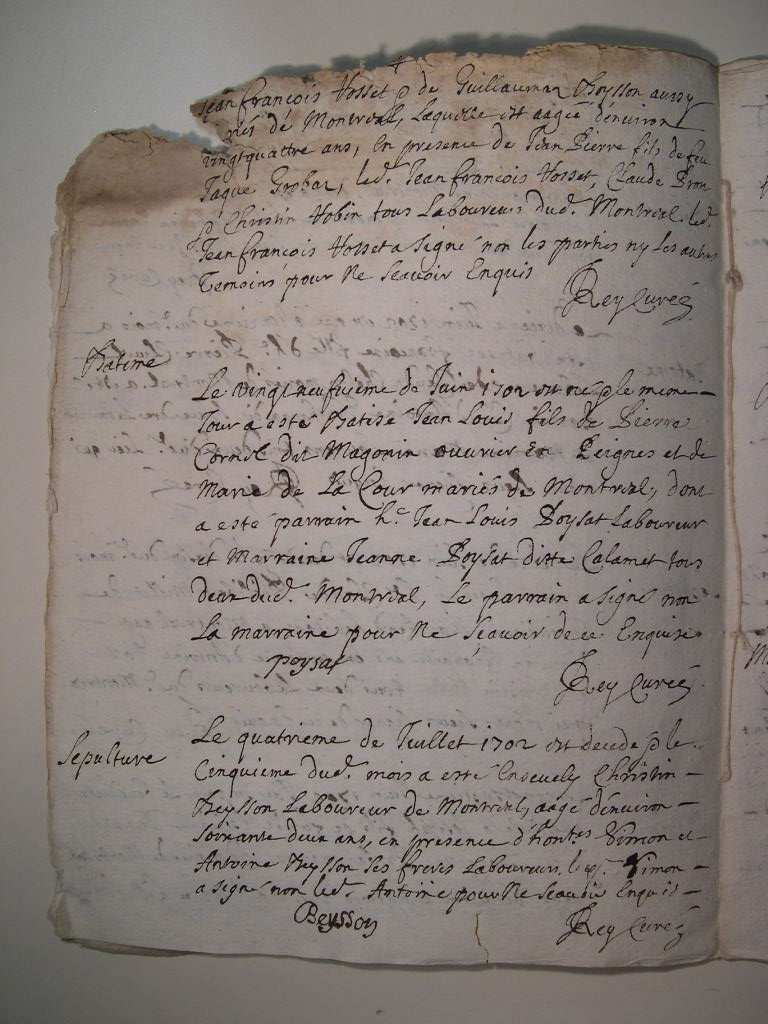 Jean francois Vosset & de Guillauman Beysson aussy
riés de Montreal, Laquelle est aagée d'environ
vingtquattre ans, En presence de Jean Pierre fils de feu
Jaque Grobaz, led. Jean francois Vosset, Claude
& Christin Vobin tous Laboureurs dud. Montreal. led.
Jean francois Vosset a signé non les parties ny les autres
Temoins pour Ne Scavoir Enquis
Rey Curé
Batême
Le vingtneufvieme de Juin 1702 est né & le meme
Jour a esté Batisé Jean Louis fils de Pierre
dit Magonin ouvrier En Peignes et de
Marie de La Cour mariés de Montreal, dont
a esté parrain h.e Jean Louis Poysat Laboureur
et Marraine Jeanne Poysat ditte Calamet tous
deux dud. Montreal, Le parrain a signé non
La marraine pour Ne Sçavoir de ce Enquise
poysat
Rey Curé
Sepulture
Le quatrieme de Juillet 1702 est decedé & le
Cinquieme dud. mois a esté Ensevely Christin
Beysson Laboureur de Montreal, aagé d'environ
soixante deux ans, en presence d'hontes Simon et
Antoine Beysson ses freres Laboureurs, led. Simon
a signé non led. Antoine pour Ne Scavoir Enquis
Beysson
Rey Curé